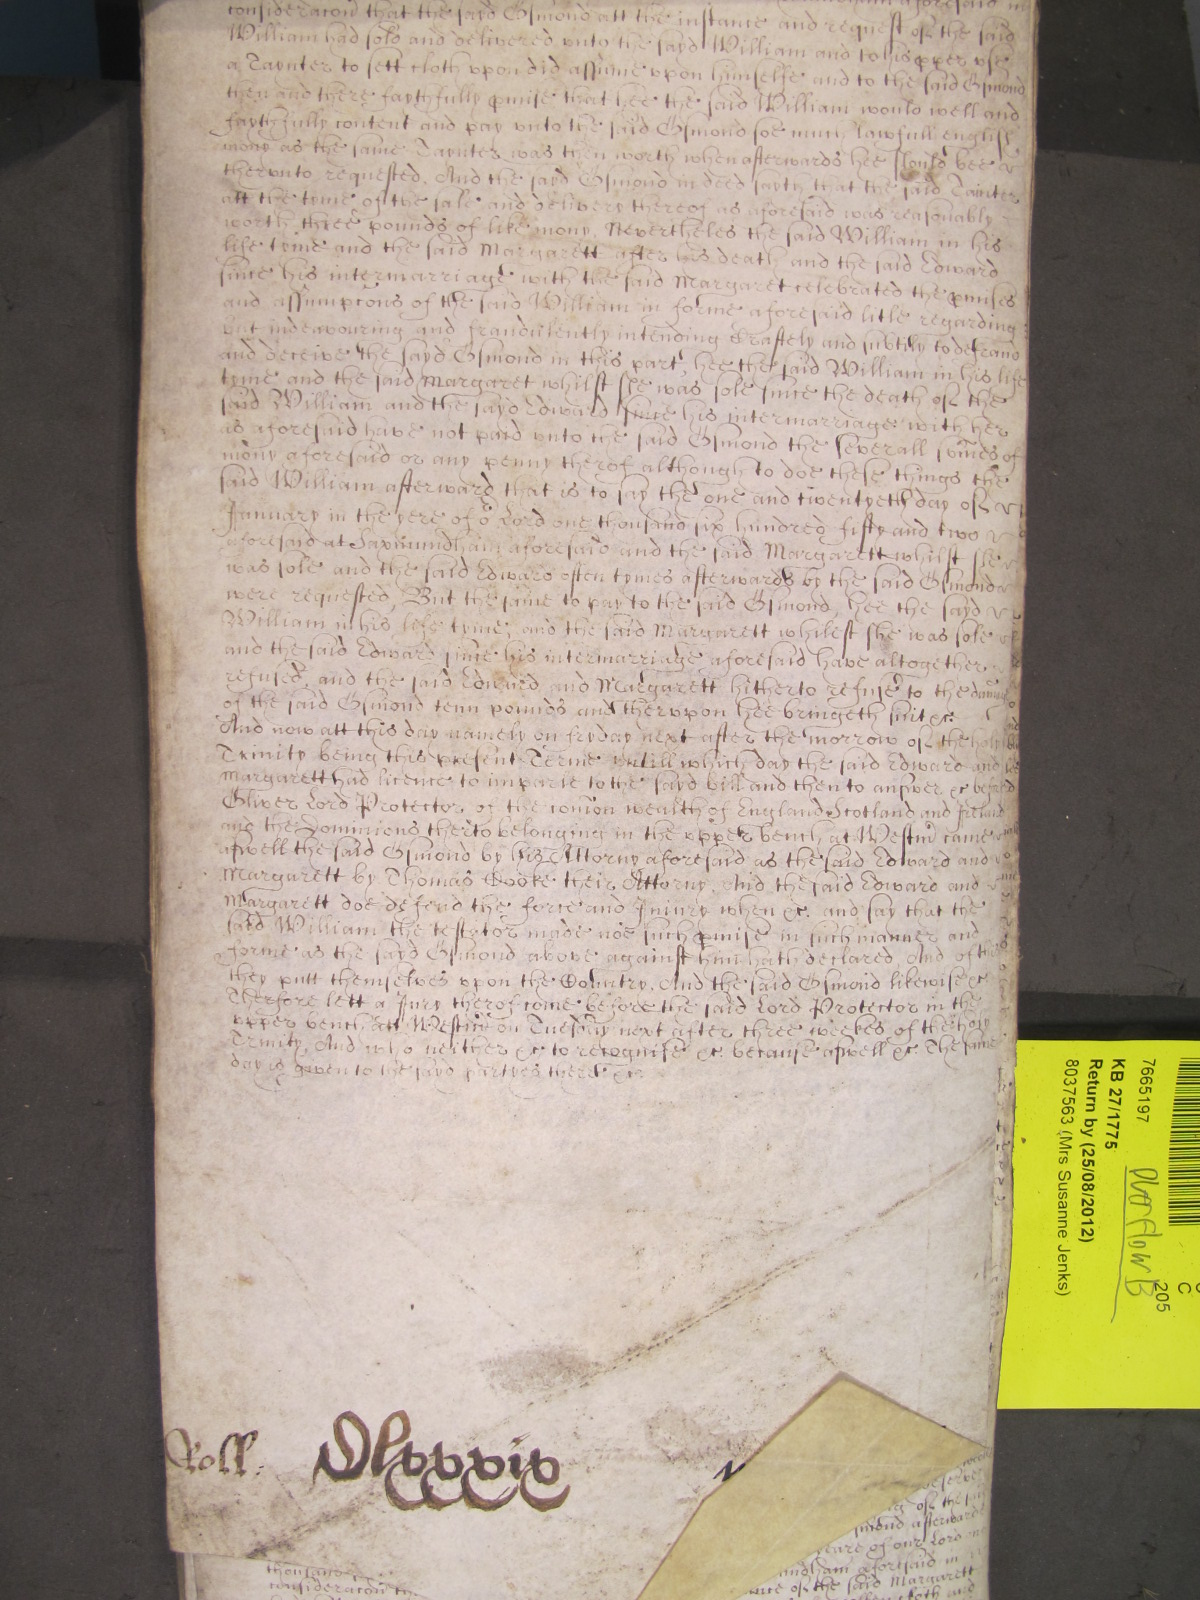 consideracon that the said Osmond att the instance and request of the said
William had sold and delivered unto the sayd William and to his pper use
a Taynter to sett cloth upon did assume upon himselfe and to the said Osmond
then and there faythfully pmise that hee the said William would well and
faythfully content and pay unto the said Osmond soe much lawfull english
mony as the same Taynter was then worth when afterwards hee should bee
therunto requested. And the sayd Osmond in deed sayth that the said Tainter
att the tyme of the sale and delivery thereof as aforesaid was reasonably
worth three pounds of like mony. Nevertheles the said William in his
life tyme and the said Margarett after his death and the said Edward
since his intermarriage with the said Margaret celebrated the pmises
and assumpcons of the said William in forme aforesaid litle regarding
but indeavouring and fraudulently intending craftely and subtily to defraud
and deceive the sayd Osmond in this part, hee the said William in his life
tyme and the said Margaret whilst she was sole since the death of the
said William and the sayd Edward since his intermarriage with her
as aforesaid have not paid unto the said Osmond the severall somes of
mony aforesaid or any penny therof although to doe these things the
said William afterward that is to say the one and twentyeth day of
January in the yere of or Lord one thousand six hundred fifty and two
aforesaid at Saxmundham aforesaid and the said Margarett whilst she
was sole and the said Edward often tymes afterwards by the said Osmond
were requested, But the same to pay to the said Osmond, hee the sayd
William in his life tyme, and the said Margarett whilest she was sole
and the said Edward since his intermarriage aforesaid have altogether
refused, and the said Edward and Margarett hitherto refuse to the damage
of the said Osmond tenn pounds and therupon hee bringeth suit &c.
And now att this day namely on fryday next after the morrow of the holy
Trinity being this present Terme untill which day the said Edward and
Margarett had licence to imparle to the sayd bill and then to answer &c before
Oliver Lord Protector of the comon wealth of England Scotland and Ireland
and the Dominions therto belonging in the upper bench at Westmr came
aswell the said Osmond by his Attorny aforesaid as the said Edward and
Margarett by Thomas Cooke their Attorny. And the said Edward and
Margarett doe defend the force and Iniury when &c. and say that the
said William the testator made noe such pmise in such manner and
forme as the sayd Osmond above against him hath declared, And of this
they putt themselves upon the Country. And the said Osmond likewise &c
Therfore lett a Jury therof come before the said Lord Protector in the
upper bench att Westmr on Tuesday next after three weekes of the holy
Trinity, And who neither &c to recognise &c because aswell &c The same
day is given to the sayd partyes there &c
Roll. Clxxxix
thousand
consideracon
of the
afterwards
yeare of our Lord
aforesaid in
of the said Margarett
cloth and
7665197
KB 27/1775
Return by (25/08/2012)
8037563 (Mrs Susanne Jenks)
Overflow B
205
C